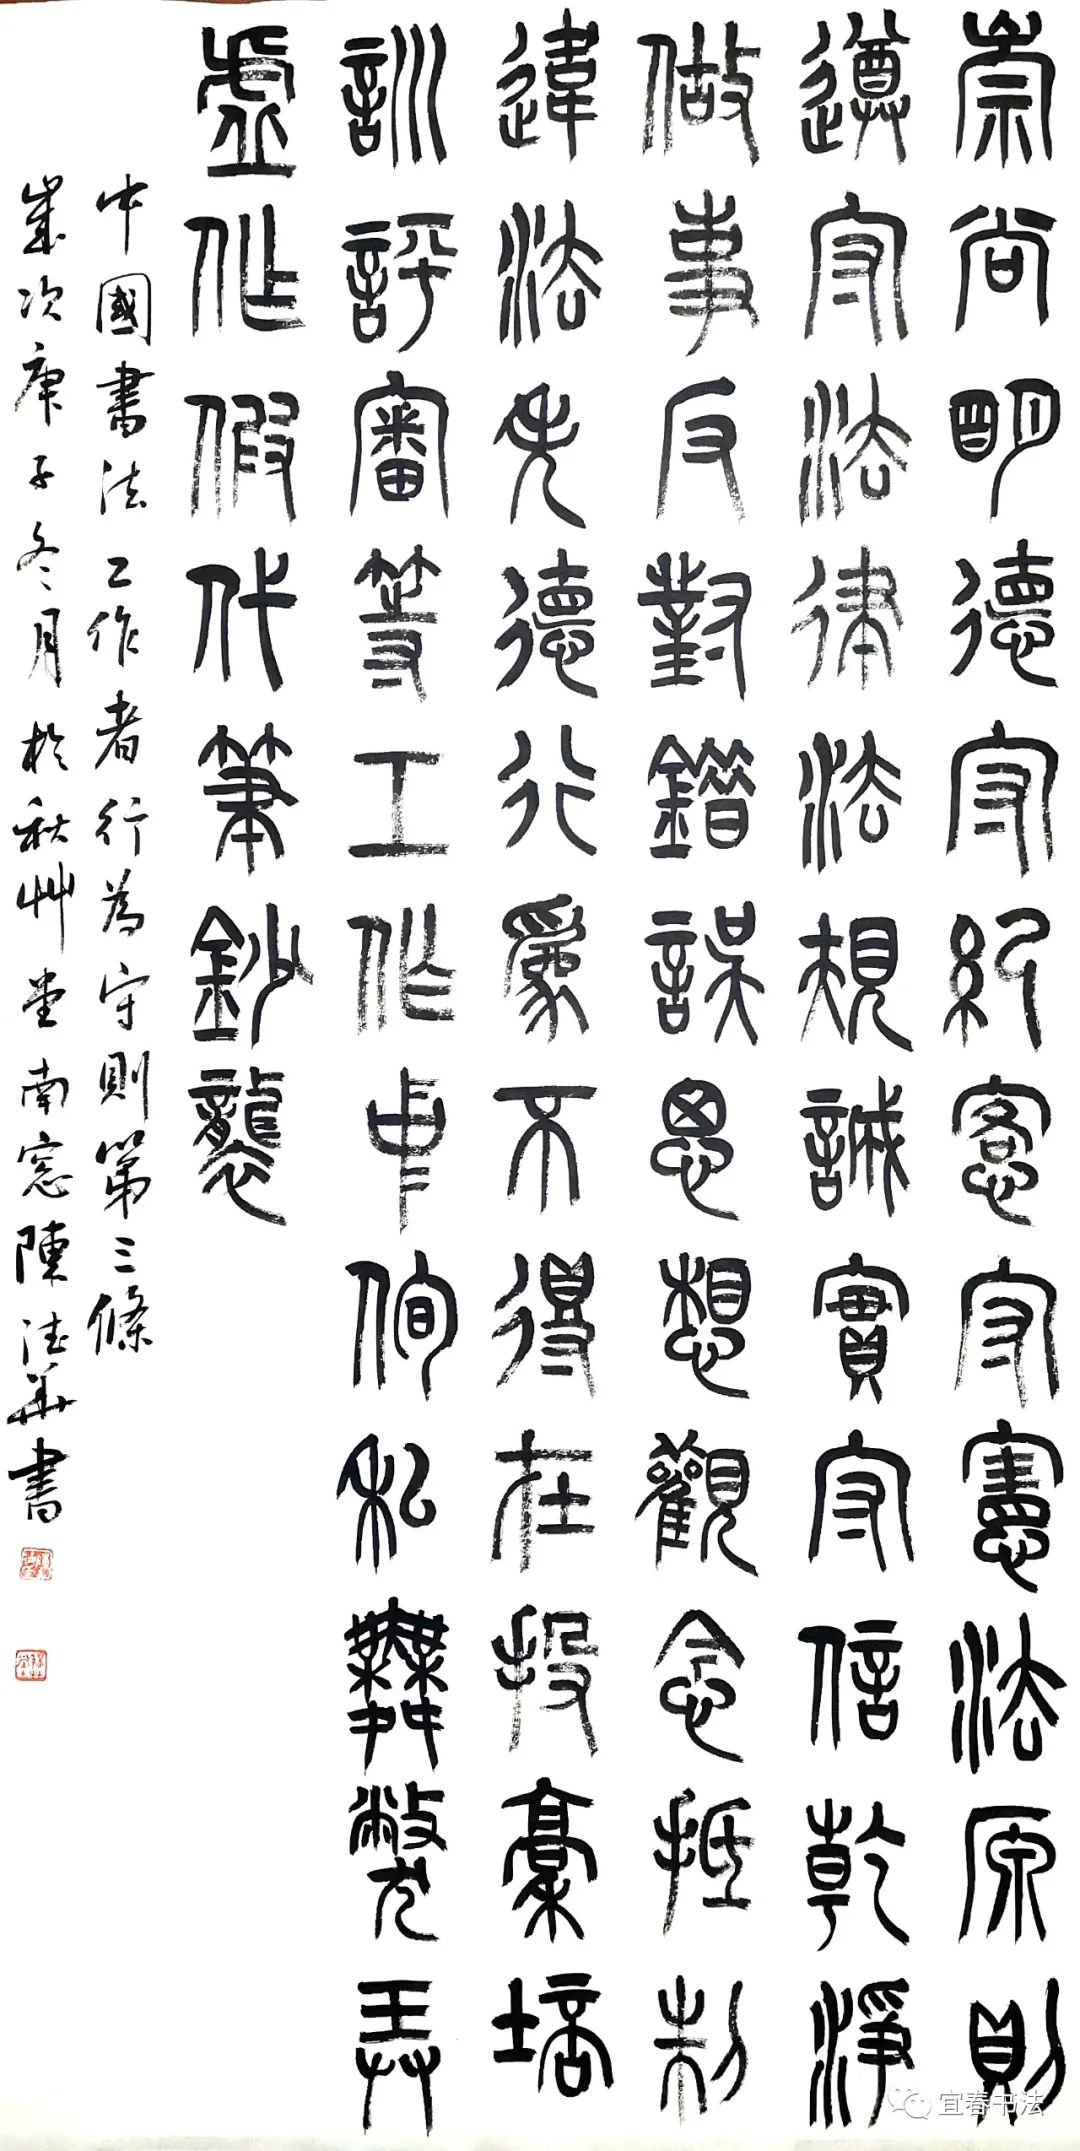 崇尚明德守紀憲守憲法原則
遵守法律法規誠實守信乾淨
做事反對錯誤思想觀念抵制
違法失德行為不得在投稿培
訓評審等工作中徇私舞弊弄
虛作假代筆鈔襲
中國書法工作者行為守則第三條
歲次庚子冬月於秋艸堂南窓陳法華書
宜春书法